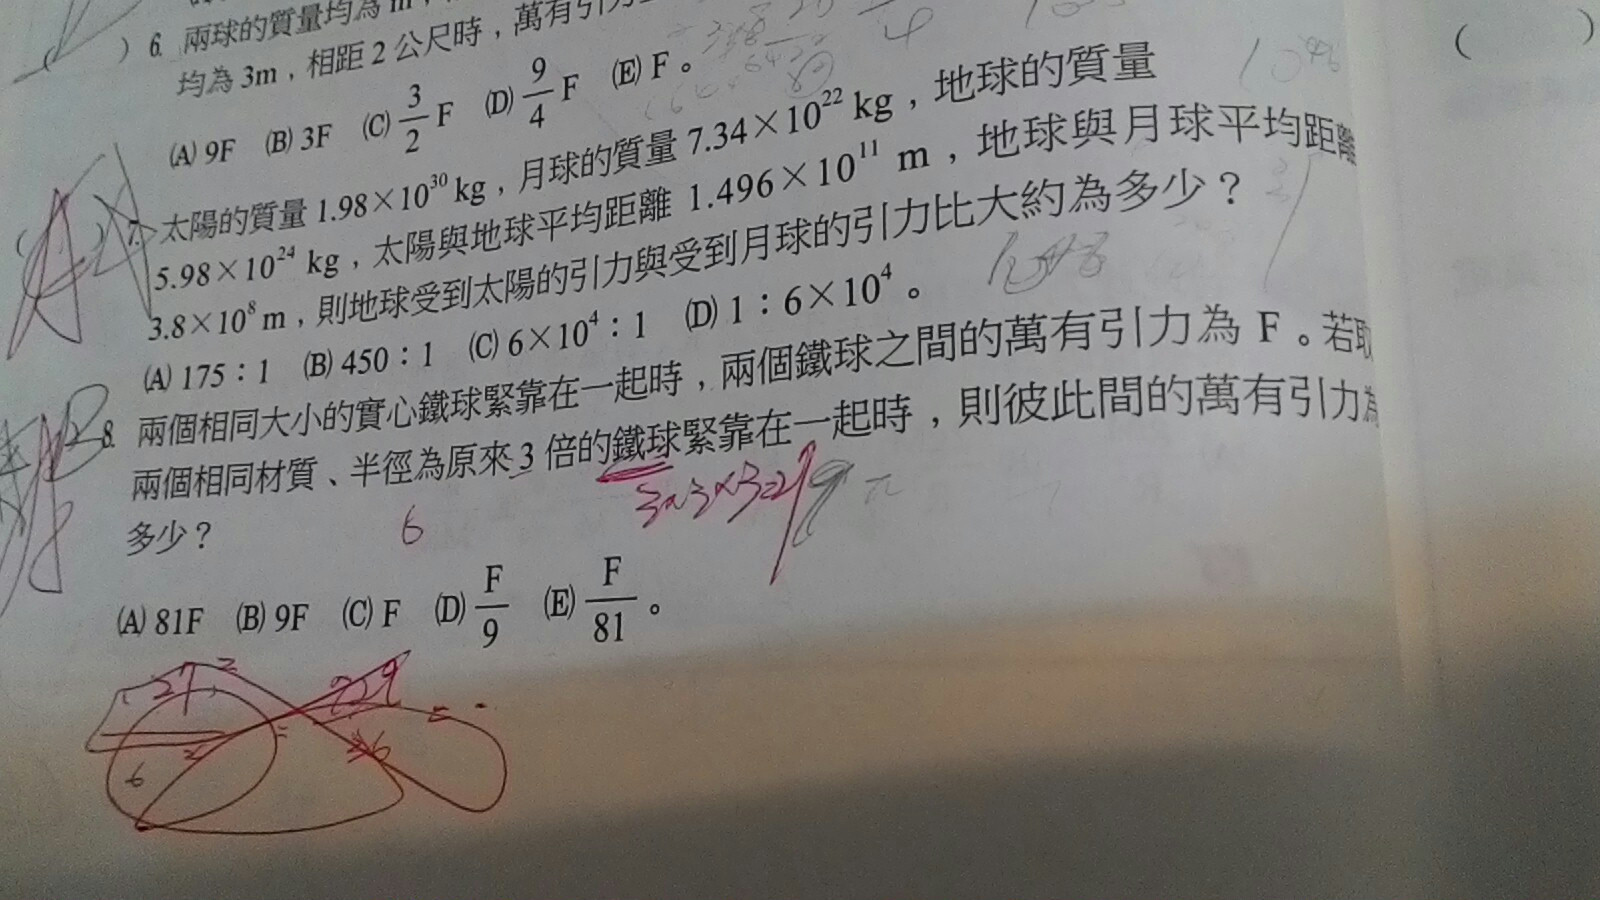 ( ) 6. 兩球的質量均為 m，
均為 3m，相距 2 公尺時，萬有引力
(A) 9F (B) 3F (C) 3/2 F (D) 9/4 F (E) F。
( ) 7. 太陽的質量 1.98×10³⁰ kg，月球的質量 7.34×10²² kg，地球的質量
5.98×10²⁴ kg，太陽與地球平均距離 1.496×10¹¹ m，地球與月球平均距離
3.8×10⁸ m，則地球受到太陽的引力與受到月球的引力比大約為多少？
(A) 175：1 (B) 450：1 (C) 6×10⁴：1 (D) 1：6×10⁴。
8. 兩個相同大小的實心鐵球緊靠在一起時，兩個鐵球之間的萬有引力為 F。若取
兩個相同材質、半徑為原來 3 倍的鐵球緊靠在一起時，則彼此間的萬有引力為
多少？
6
(A) 81F (B) 9F (C) F (D) F/9 (E) F/81。
27 729
6 36